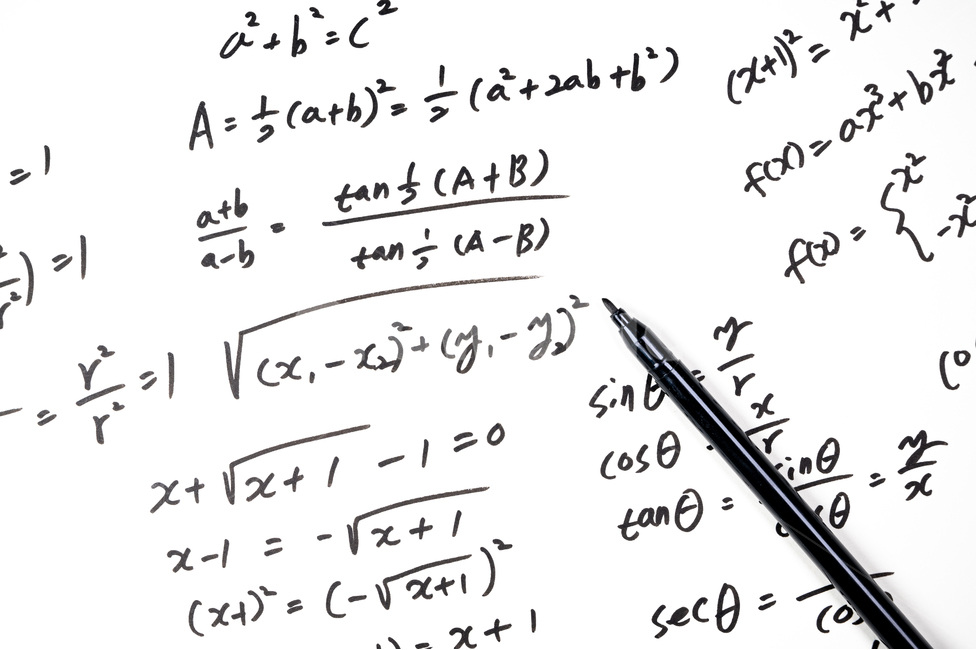 a² + b² = c²
A = 1/2 (a+b)² = 1/2 (a² + 2ab + b²)
(a+b)/(a-b) = (tan 1/2 (A+B))/(tan 1/2 (A-B))
= 1
r²) = 1
= r²/r² = 1
√((x₁ - x₂)² + (y₁ - y₂)²
x + √(x+1) - 1 = 0
x-1 = -√(x+1)
(x+1)² = (-√(x+1))²
) = x + 1
(x+1)² = x² +
f(x) = ax³ + bx²
f(x) = { x²
-x²
sinθ = y/r
cosθ = x/r
tanθ = sinθ/cosθ = y/x
secθ =